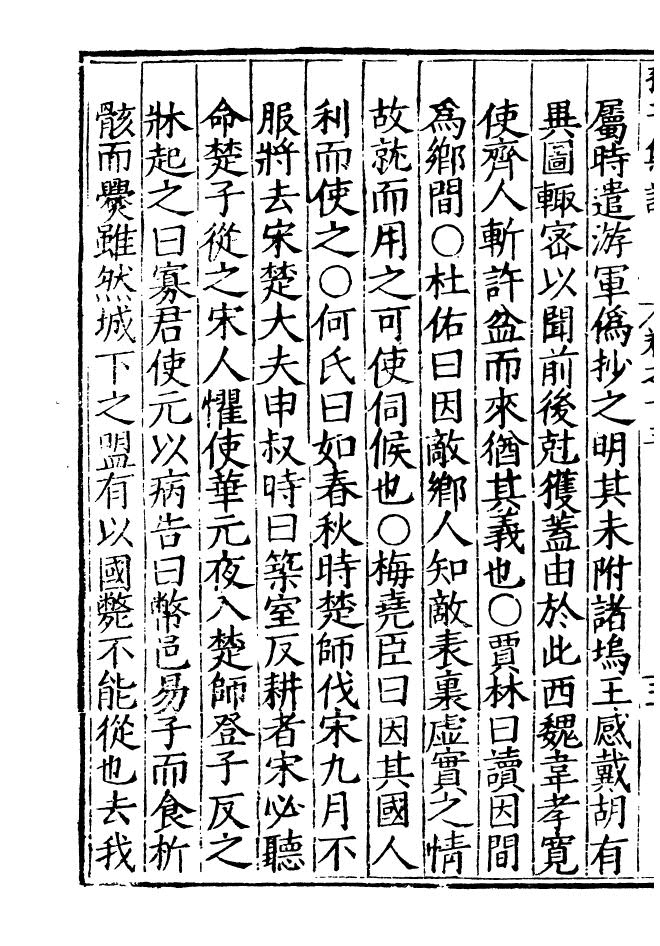 屬時遣游軍僞抄之明其未附諸塢主感戴胡有
異圖輙密以聞前後尅獲蓋由於此西魏韋孝寛
使齊人斬許盆而來猶其義也○賈林曰讀因間
爲鄉間○杜佑曰因敵鄉人知敵表裏虛實之情
故就而用之可使伺候也○梅堯臣曰因其國人
利而使之○何氏曰如春秋時楚師伐宋九月不
服將去宋楚大夫申叔時曰築室反耕者宋必聽
命楚子從之宋人懼使華元夜入楚師登子反之
牀起之曰寡君使元以病告曰幣邑易子而食析
骸而爨雖然城下之盟有以國斃不能從也去我